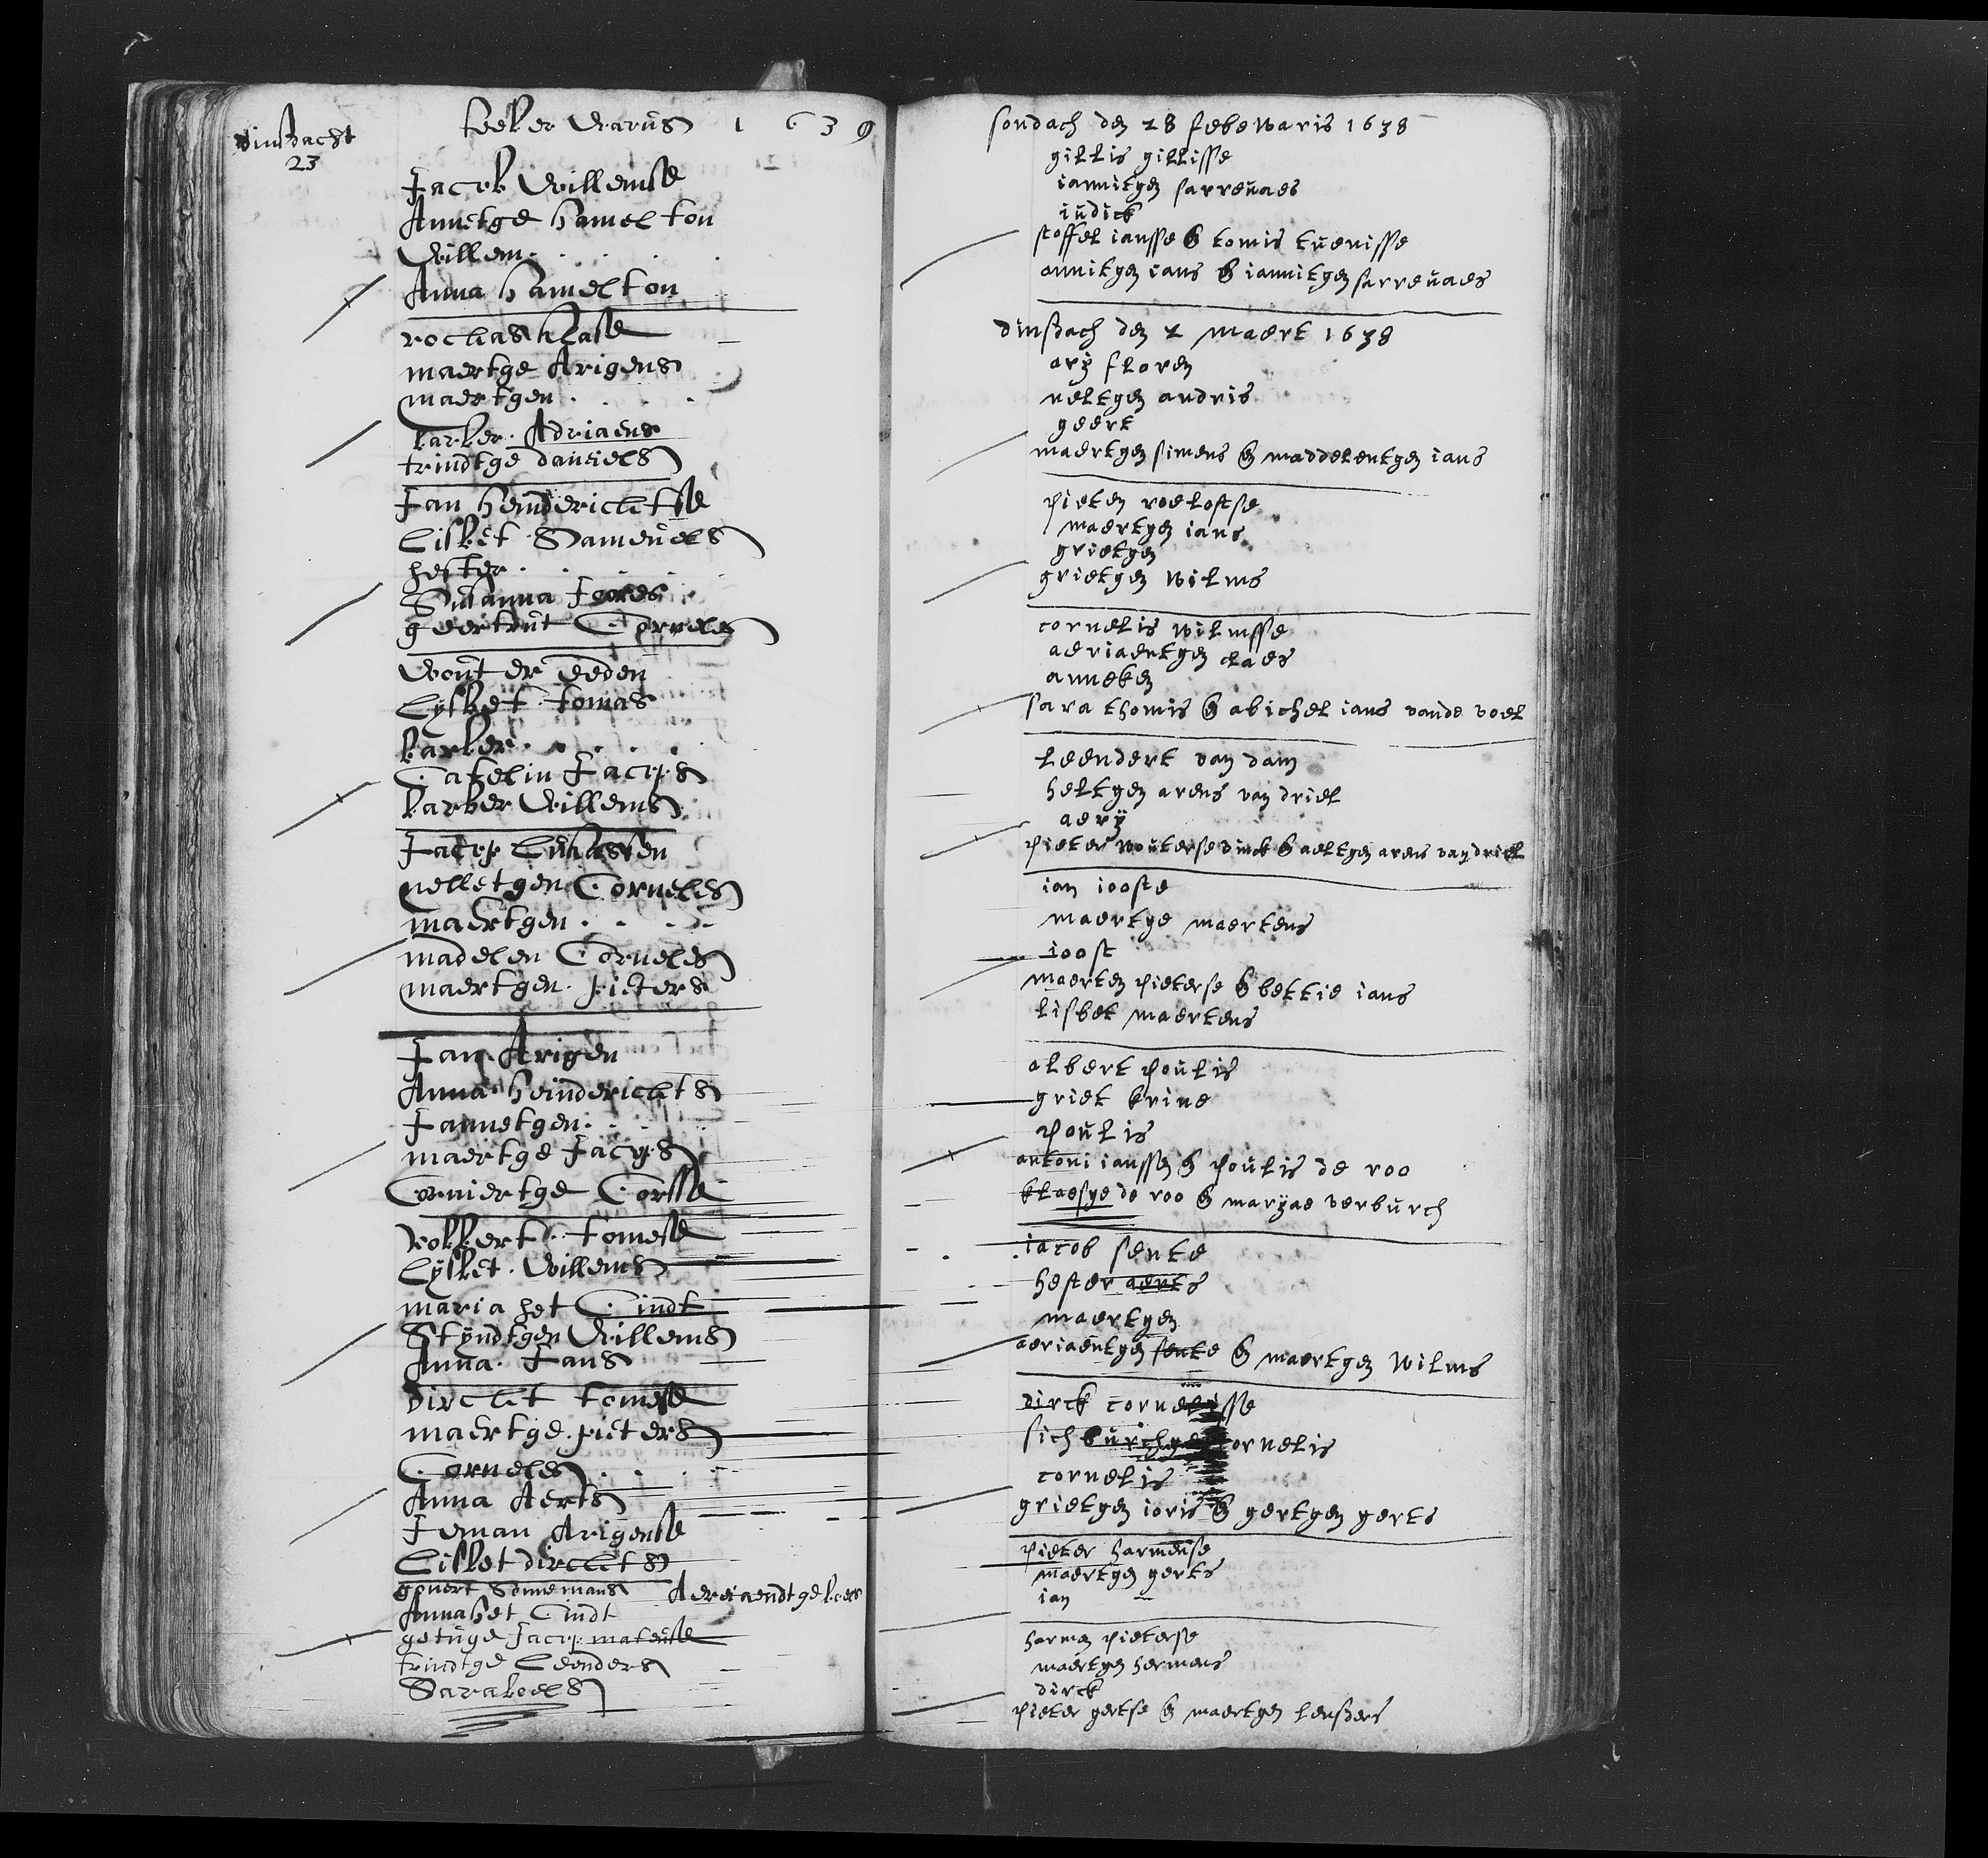 dinsdacht
23
feeber Warus 1638
Jacob Willemse
Annetge hamelton
Willem
Anna hamelton
rochas klase
maertge Arigens
maertgen
barber Adriaens
trindtge daniels
Jan heinderichtse
Lisbet Samuels
hester
Susanna
geertrut Corneles
Wouter
Lysbet tomas
barber
Catelin Jacops
barber Willems
Jacop
nelletgen Corneles
maertgen
madelen Corneles
maertgen pieters
Jan Arigen
Anna heinderichts
Jannetgen
maertge Jacops
Corniertge Corsse
robbert tomese
Lysbet Willems
maria het Cindt
Styndtgen Willems
Anna Jans
dircht tomese
maertge pieters
Corneles
Anna Aerts
Arigense
Lisbet dirchts
govert
Anna het Cindt
getuge Jacop
trindtge Leenders
Sara
sondach den 28 febewaris 1638
gillis gillisse
iannitgen sarrevaes
iudick
stoffel iansse & tomis tuenisse
annitgen ians & iannitgen sarrevaes
dinsdach den 2 maert 1638
ary floren
neltgen andris
geert
maertgen simens & maddelentgen ians
pieten roelofse
maertgen ians
grietgen
grietgen wilms
cornelis wilmsse
aeriaentgen claes
anneken
sara thomis & abichel ians vande voel
leendert van dam
heltgen arens van driel
aery
pieter wouterse vinck & aeltgen arens van driel
ian iooste
maertge maertens
ioost
maerten pieterse & bettie ians
lisbet maertens
albert poulis
griet krine
poulis
antoni ianssen & poulis de roo
klaesge de roo & maryae verburch
iacob sente
hester aerts
maertgen
aeriaentgen sente & maertgen wilms
dirck cornelisse
cornelis
cornelis
grietgen ioris & gertgen gerts
pieter harmense
maertgen gerts
ian
harmen pieterse
maertgen hermens
dirck
pieter gertse & maertgen